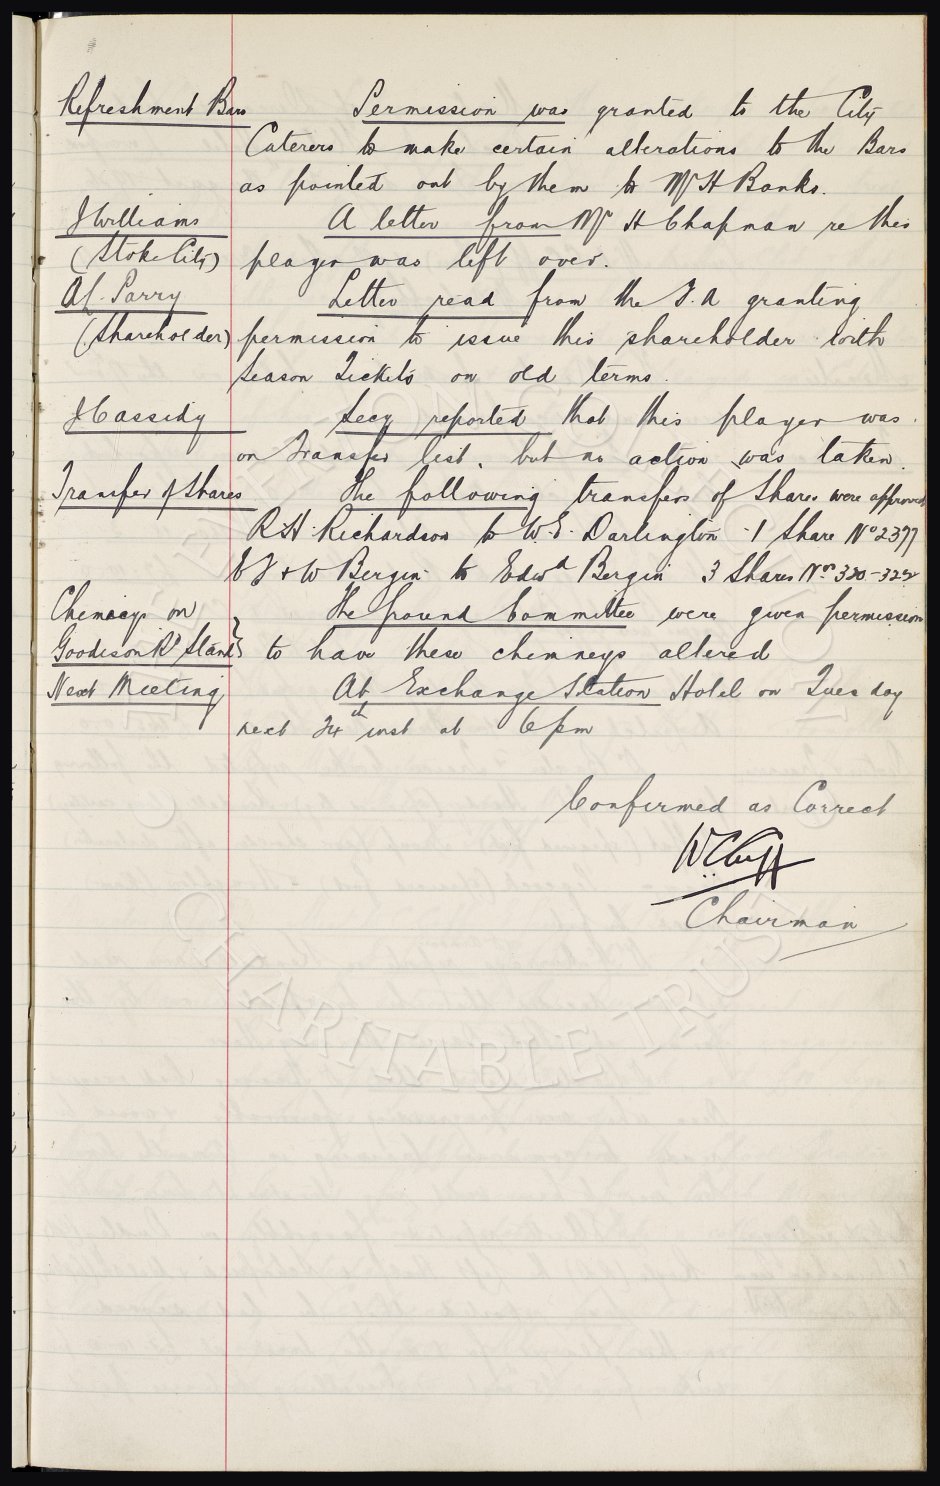 Refreshment Bars Permission was granted to the City
Caterers to make certain alterations to the Bars
as pointed out by them to Mr H Banks.
J Williams A letter from Mr H Chapman re this
(Stoke City) player was left over.
Al. Parry Letter read from the F.A granting
(Shareholder) permission to issue this shareholder with
Season Tickets on old terms.
J Cassidy Secy reported that this player was
on Transfer list, but no action was taken.
Transfer of Shares The following transfers of Shares were approved
R.H. Richardson to W.E. Darlington 1 Share No 2377
& W Bergin to Edwd Bergin 3 Shares Nos 320-322
Chimneys on The Ground Committee were given permission
Goodison Rd Stand } to have these chimneys altered
Next Meeting At Exchange Station Hotel on Tuesday
next 24th inst at 6pm
Confirmed as Correct
W.C. Cuff
Chairman
CHARITABLE TRUST